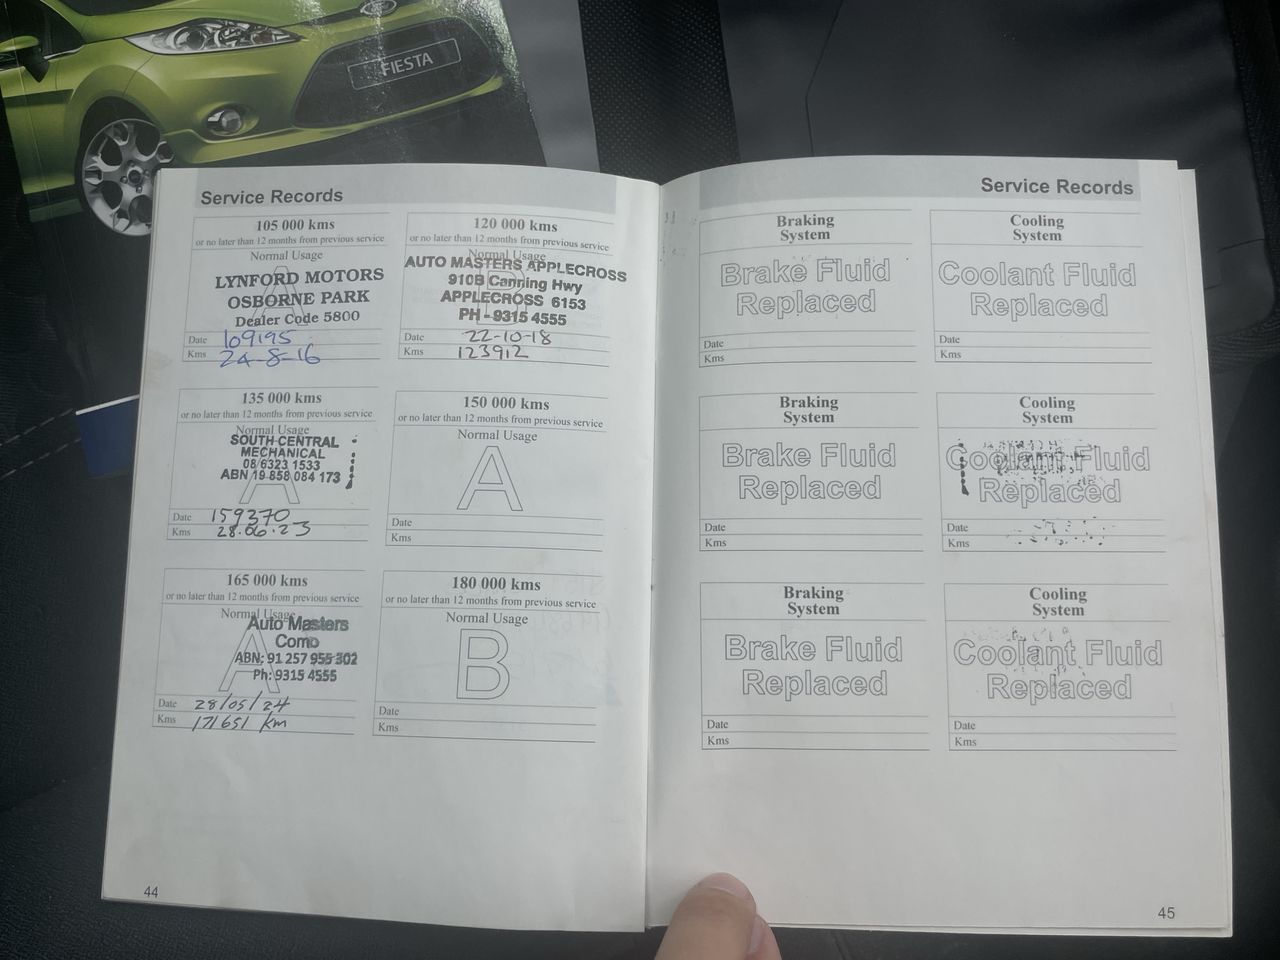 FIESTA
Service Records
105 000 kms
or no later than 12 months from previous service
Normal Usage
A
LYNFORD MOTORS
OSBORNE PARK
Dealer Code 5800
Date 109195
Kms 24-8-16
120 000 kms
or no later than 12 months from previous service
Normal Usage
B
AUTO MASTERS APPLECROSS
910B Canning Hwy
APPLECROSS 6153
PH - 9315 4555
Date 22-10-18
Kms 123912
135 000 kms
or no later than 12 months from previous service
Normal Usage
A
SOUTH CENTRAL
MECHANICAL
08 6323 1533
ABN 19 858 084 173
Date 159370
Kms 28.06.23
150 000 kms
or no later than 12 months from previous service
Normal Usage
A
Date
Kms
165 000 kms
or no later than 12 months from previous service
Normal Usage
A
Auto Masters
Como
ABN: 91 257 955 302
Ph: 9315 4555
Date 28/05/24
Kms 171651 km
180 000 kms
or no later than 12 months from previous service
Normal Usage
B
Date
Kms
44
Service Records
Braking
System
Brake Fluid
Replaced
Date
Kms
Cooling
System
Coolant Fluid
Replaced
Date
Kms
Braking
System
Brake Fluid
Replaced
Date
Kms
Cooling
System
Coolant Fluid
Replaced
Date
Kms
Braking
System
Brake Fluid
Replaced
Date
Kms
Cooling
System
Coolant Fluid
Replaced
Date
Kms
45